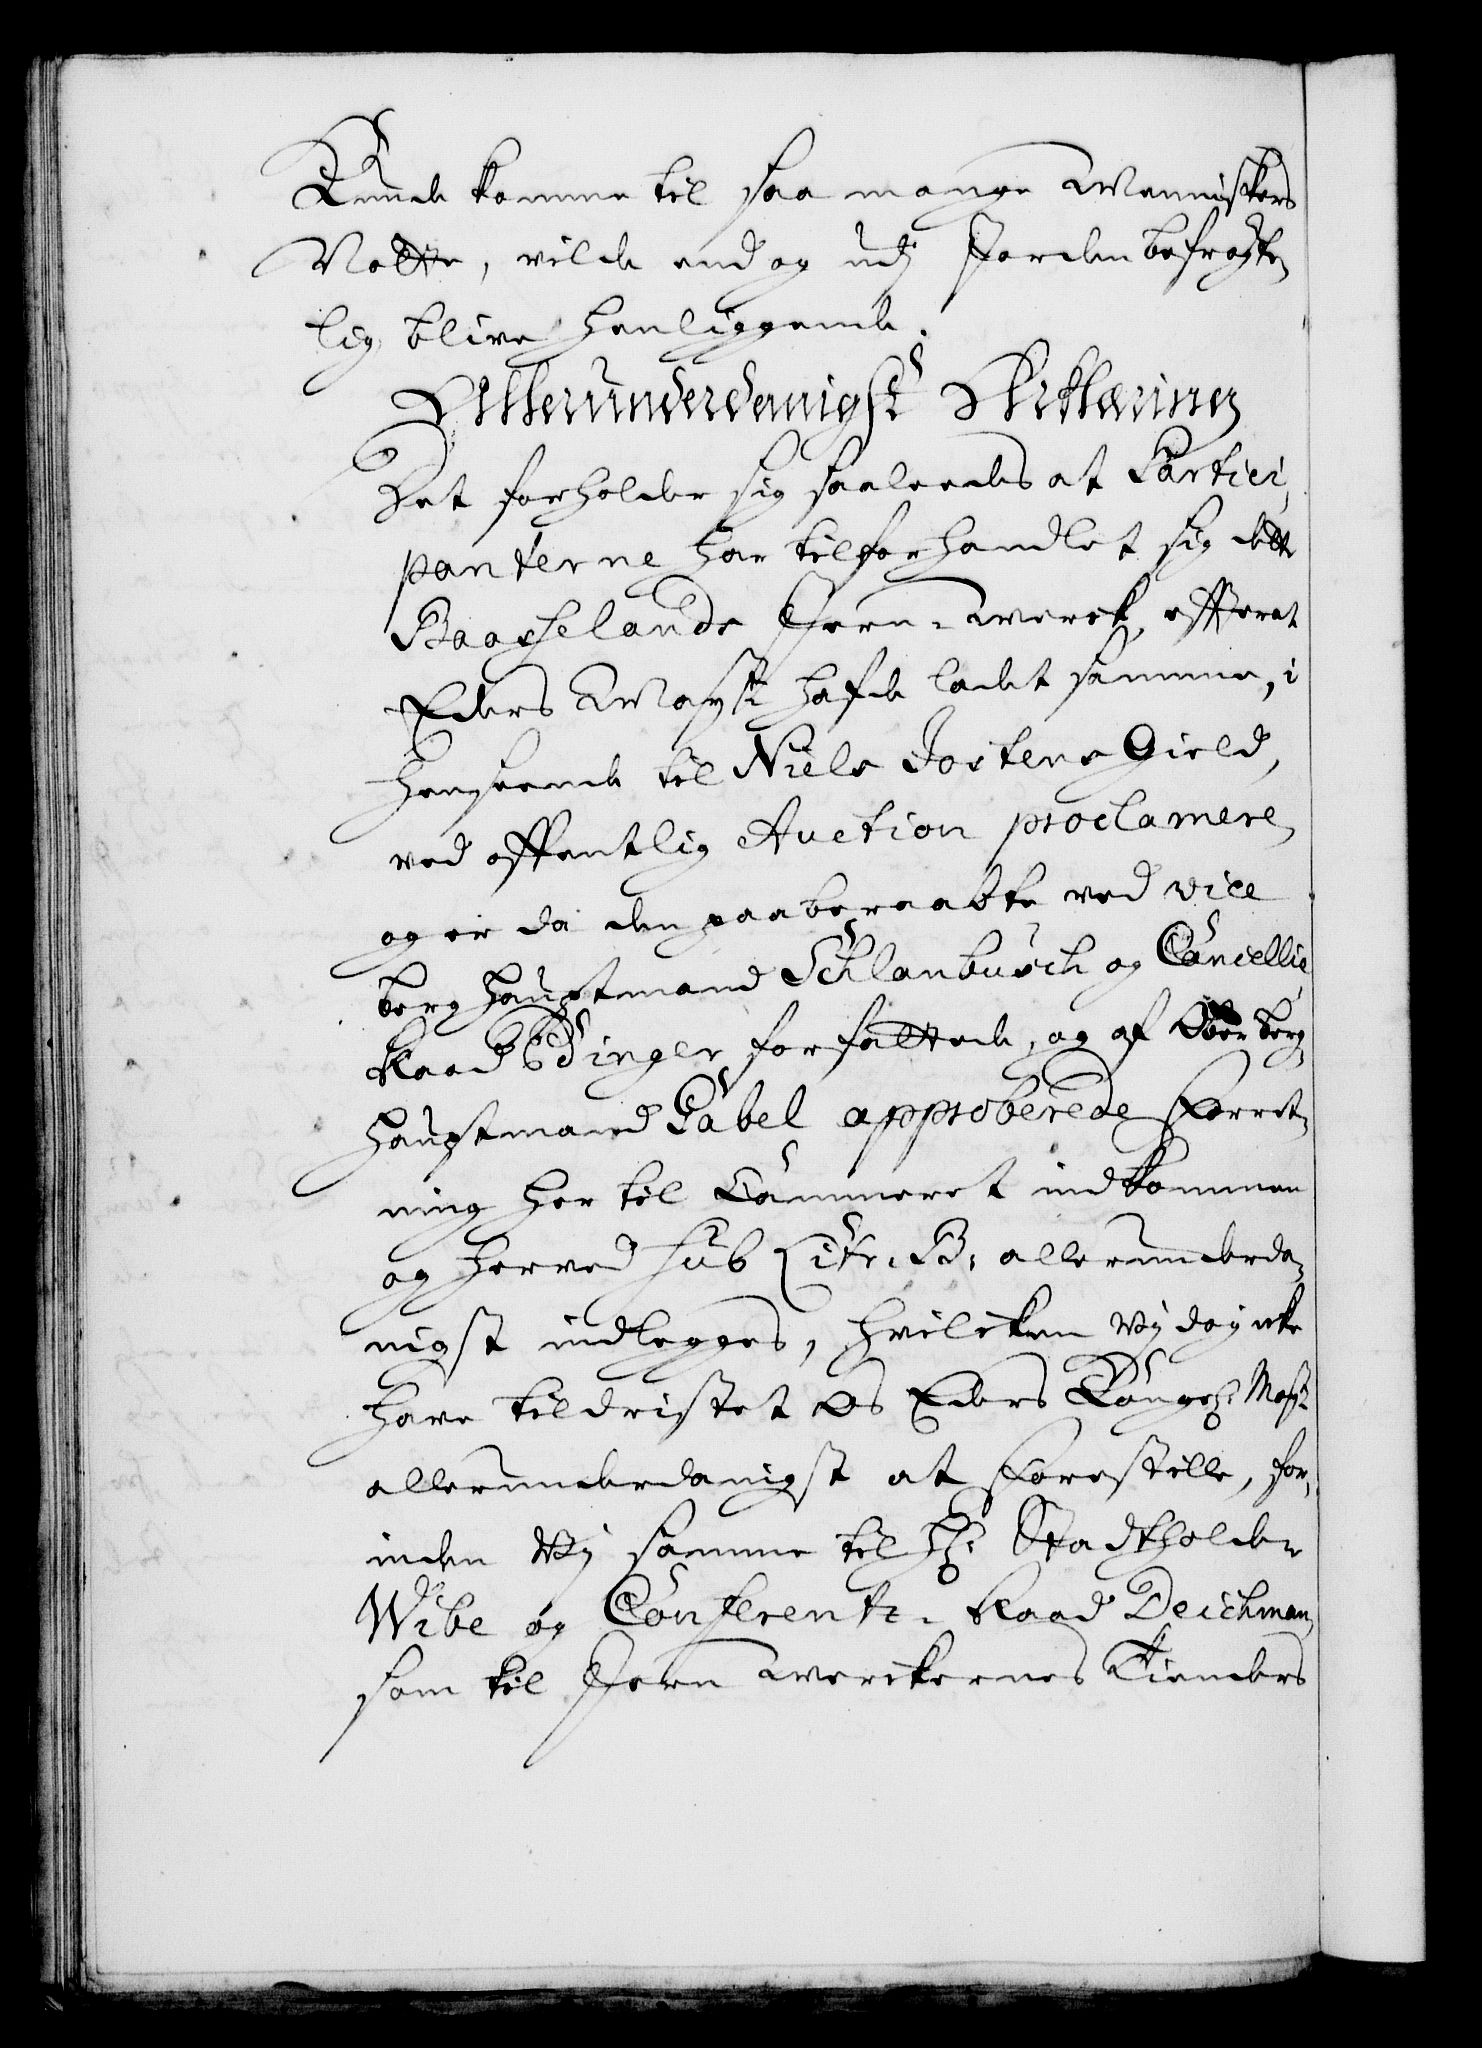 Kunde komme til saa mange Menniskers
Nøtte, vilde endog udj Jorden befrogte,
lig blive henliggende.
Allerunderdanigst Erklæring
Det forholder sig saaleedes at Partici,
panterne har tilforhandlet sig dette
Baaselands Jern-werck, efterat
Eders Mayst hafde ladet samme, i
henseende til Niels Jostens Gield,
ved offentlig Auction proclamere,
og er da den paaberaabte ved vice
berg hauptmand Schlanbusch og Cancellie
Raad Edinger forfattede, og af Ober berg
hauptmand Gabel approberede Forret,
ning her til Cammeret indkommen
og herved sub Litr. B. allerunderda,
nigst indlegges, hvilcken Vy dog icke
have tildristet Os Eders Kongel. Mayst
allerunderdanigst at Forestille, for,
inden Vy samme til Hr. Stadtholder
Wibe og Conferentz-Raad Deichman,
som til Jern werckernes Tienders